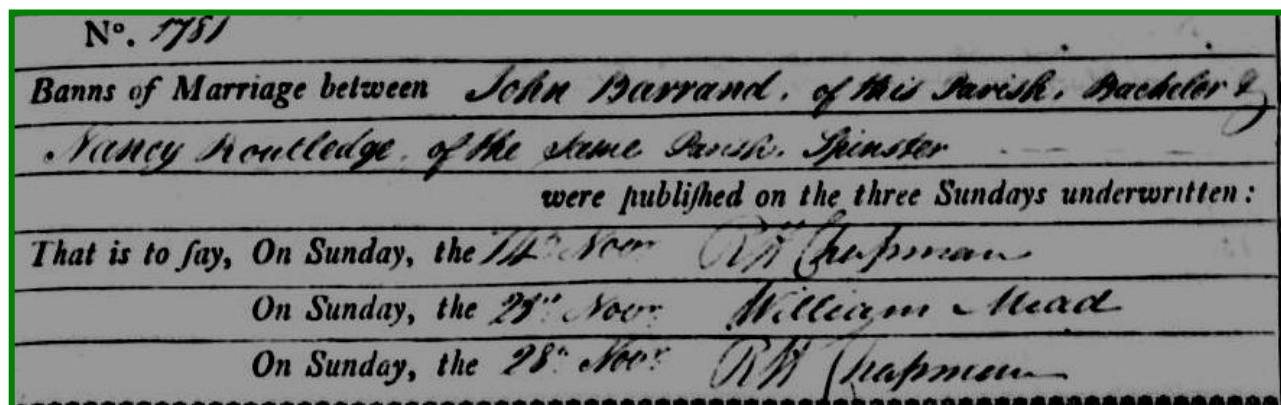 Nº. 1781
Banns of Marriage between John Barrand, of this Parish, Bachelor &
Nancy Routledge, of the same Parish, Spinster
were publiſhed on the three Sundays underwritten:
That is to ſay, On Sunday, the 14th Novr RW Chapman
On Sunday, the 21st Novr William Mead
On Sunday, the 28th Novr RW Chapman